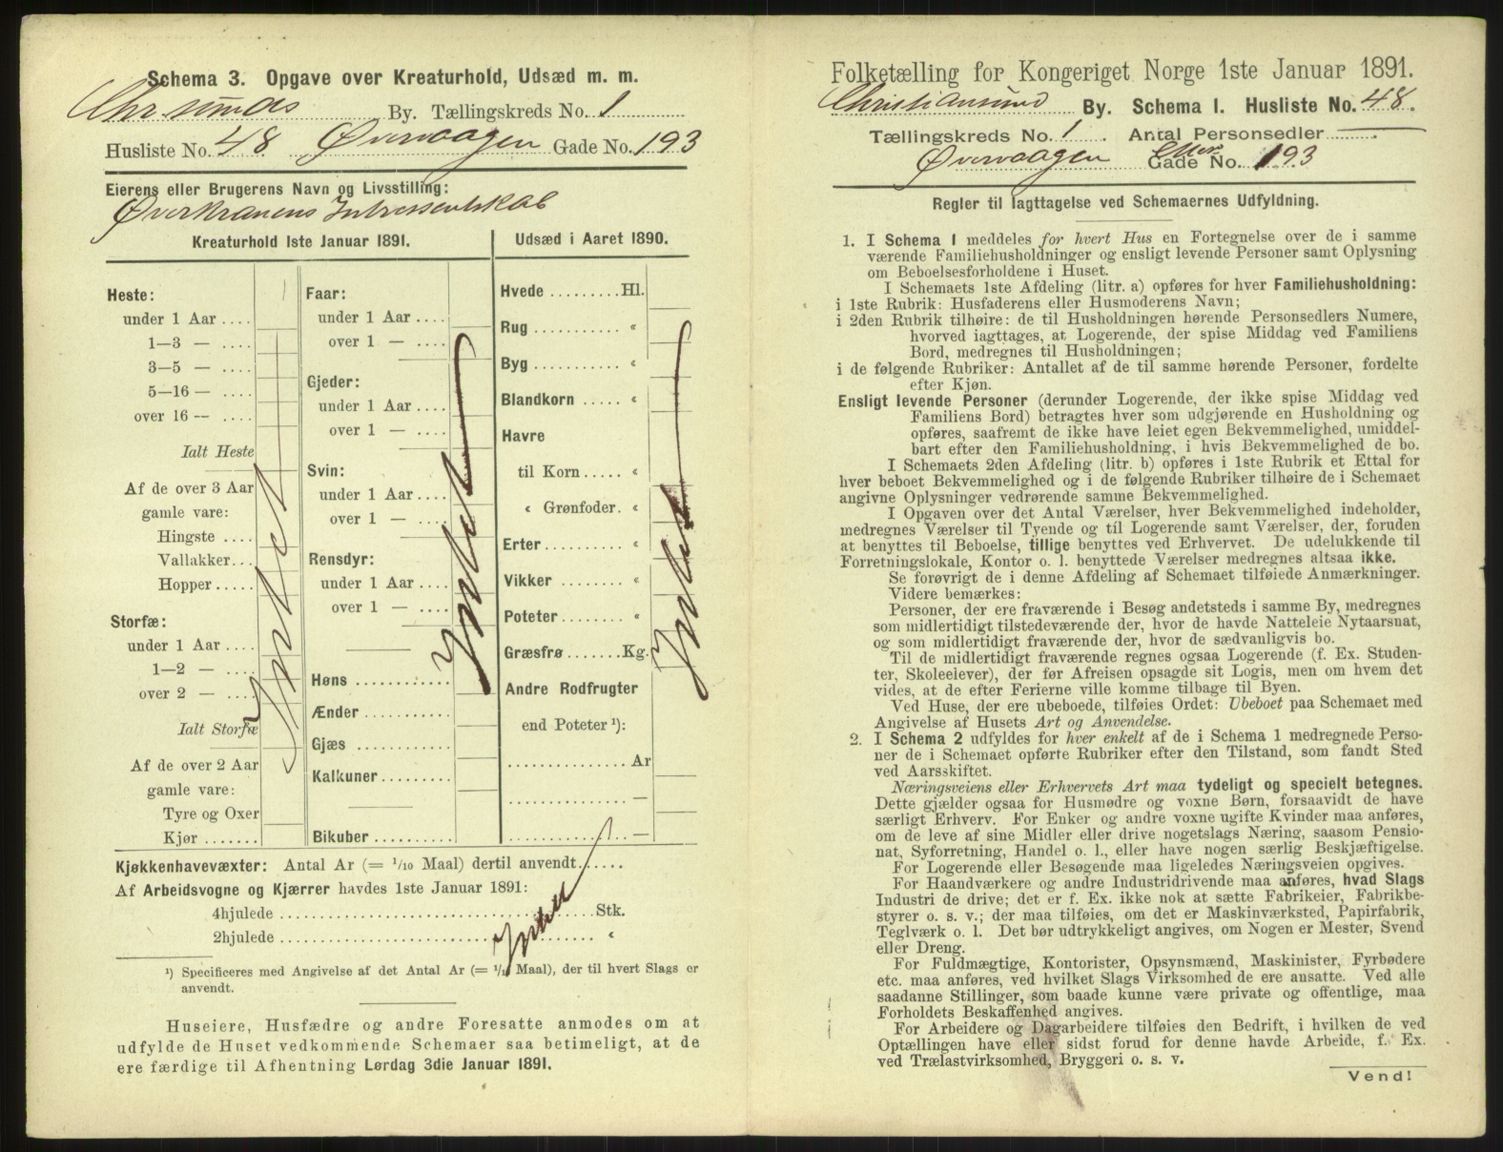 Schema 3. Opgave over Kreaturhold, Udsæd m. m.
Chrsunds By. Tællingskreds No. 1
Husliste No. 48 Øvervaagen Gade No. 193
Eierens eller Brugerens Navn og Livsstilling:
Øverkranens Intressentskab
Kreaturhold 1ste Januar 1891.
Heste:
under 1 Aar ....
1—3 — ....
3—5 — ....
5—16 — ....
over 16 — ....
Ialt Heste
Af de over 3 Aar
gamle vare:
Hingste ....
Vallakker...
Hopper .....
Storfæ:
under 1 Aar ....
1—2 — ....
over 2 — ....
Ialt Storfæ
Af de over 2 Aar
gamle vare:
Tyre og Oxer
Kjør .......
Intet
Faar:
under 1 Aar ....
over 1 — ....
Gjeder:
under 1 Aar ....
over 1 — ....
Svin:
under 1 Aar ....
over 1 — ....
Rensdyr:
under 1 Aar ....
over 1 — ....
Høns ...........
Ænder ..........
Gjæs ...........
Kalkuner ........
Bikuber .........
Intet
Udsæd i Aaret 1890.
Hvede .........Hl.
Rug ........... «
Byg ........... «
Blandkorn ..... «
Havre
til Korn ..... «
« Grønfoder. «
Erter ......... «
Vikker ........ «
Poteter ........ «
Græsfrø .......Kg.
Andre Rodfrugter
end Poteter ¹):
............... Ar
............... —
............... —
Intet
Kjøkkenhavevæxter: Antal Ar (= 1/10 Maal) dertil anvendt......
Af Arbeidsvogne og Kjærrer havdes 1ste Januar 1891:
4hjulede ........................................ Stk.
2hjulede ........................................ «
Intet
¹) Specificeres med Angivelse af det Antal Ar (= 1/10 Maal), der til hvert Slags er
anvendt.
Huseiere, Husfædre og andre Foresatte anmodes om at
udfylde de Huset vedkommende Schemaer saa betimeligt, at de
ere færdige til Afhentning Lørdag 3die Januar 1891.
Folketælling for Kongeriget Norge 1ste Januar 1891.
Christiansund By. Schema 1. Husliste No. 48.
Tællingskreds No. 1. Antal Personsedler —
Øvervaagen Gade No. 193
Regler til Iagttagelse ved Schemaernes Udfyldning.
1. I Schema 1 meddeles for hvert Hus en Fortegnelse over de i samme
værende Familiehusholdninger og ensligt levende Personer samt Oplysning
om Beboelsesforholdene i Huset.
I Schemaets 1ste Afdeling (litr. a) opføres for hver Familiehusholdning:
i 1ste Rubrik: Husfaderens eller Husmoderens Navn;
i 2den Rubrik tilhøire: de til Husholdningen hørende Personsedlers Numere,
hvorved iagttages, at Logerende, der spise Middag ved Familiens
Bord, medregnes til Husholdningen;
i de følgende Rubriker: Antallet af de til samme hørende Personer, fordelte
efter Kjøn.
Ensligt levende Personer (derunder Logerende, der ikke spise Middag ved
Familiens Bord) betragtes hver som udgjørende en Husholdning og
opføres, saafremt de ikke have leiet egen Bekvemmelighed, umiddel-
bart efter den Familiehusholdning, i hvis Bekvemmelighed de bo.
I Schemaets 2den Afdeling (litr. b) opføres i 1ste Rubrik et Ettal for
hver beboet Bekvemmelighed og i de følgende Rubriker tilhøire de i Schemaet
angivne Oplysninger vedrørende samme Bekvemmelighed.
I Opgaven over det Antal Værelser, hver Bekvemmelighed indeholder,
medregnes Værelser til Tyende og til Logerende samt Værelser, der, foruden
at benyttes til Beboelse, tillige benyttes ved Erhvervet. De udelukkende til
Forretningslokale, Kontor o. l. benyttede Værelser medregnes altsaa ikke.
Se forøvrigt de i denne Afdeling af Schemaet tilføiede Anmærkninger.
Videre bemærkes:
Personer, der ere fraværende i Besøg andetsteds i samme By, medregnes
som midlertidigt tilstedeværende der, hvor de havde Natteleie Nytaarsnat,
og som midlertidigt fraværende der, hvor de sædvanligvis bo.
Til de midlertidigt fraværende regnes ogsaa Logerende (f. Ex. Studen-
ter, Skoleelever), der før Afreisen opsagde sit Logis, men om hvem det
vides, at de efter Ferierne ville komme tilbage til Byen.
Ved Huse, der ere ubeboede, tilføies Ordet: Ubeboet paa Schemaet med
Angivelse af Husets Art og Anvendelse.
2. I Schema 2 udfyldes for hver enkelt af de i Schema 1 medregnede Perso-
ner de i Schemaet opførte Rubriker efter den Tilstand, som fandt Sted
ved Aarsskiftet.
Næringsveiens eller Erhvervets Art maa tydeligt og specielt betegnes.
Dette gjælder ogsaa for Husmødre og voxne Børn, forsaavidt de have
særligt Erhverv. For Enker og andre voxne ugifte Kvinder maa anføres,
om de leve af sine Midler eller drive nogetslags Næring, saasom Pensio-
nat, Syforretning, Handel o. l., eller have nogen særlig Beskjæftigelse.
For Logerende eller Besøgende maa ligeledes Næringsveien opgives.
For Haandværkere og andre Industridrivende maa anføres, hvad Slags
Industri de drive; det er f. Ex. ikke nok at sætte Fabrikeier, Fabrikbe-
styrer o. s. v.; der maa tilføies, om det er Maskinværksted, Papirfabrik,
Teglværk o. l. Det bør udtrykkeligt angives, om Nogen er Mester, Svend
eller Dreng.
For Fuldmægtige, Kontorister, Opsynsmænd, Maskinister, Fyrbødere
etc. maa anføres, ved hvilket Slags Virksomhed de ere ansatte. Ved alle
saadanne Stillinger, som baade kunne være private og offentlige, maa
Forholdets Beskaffenhed angives.
For Arbeidere og Dagarbeidere tilføies den Bedrift, i hvilken de ved
Optællingen have eller sidst forud for denne havde Arbeide, f. Ex.
ved Trælastvirksomhed, Bryggeri o. s. v.
Vend!